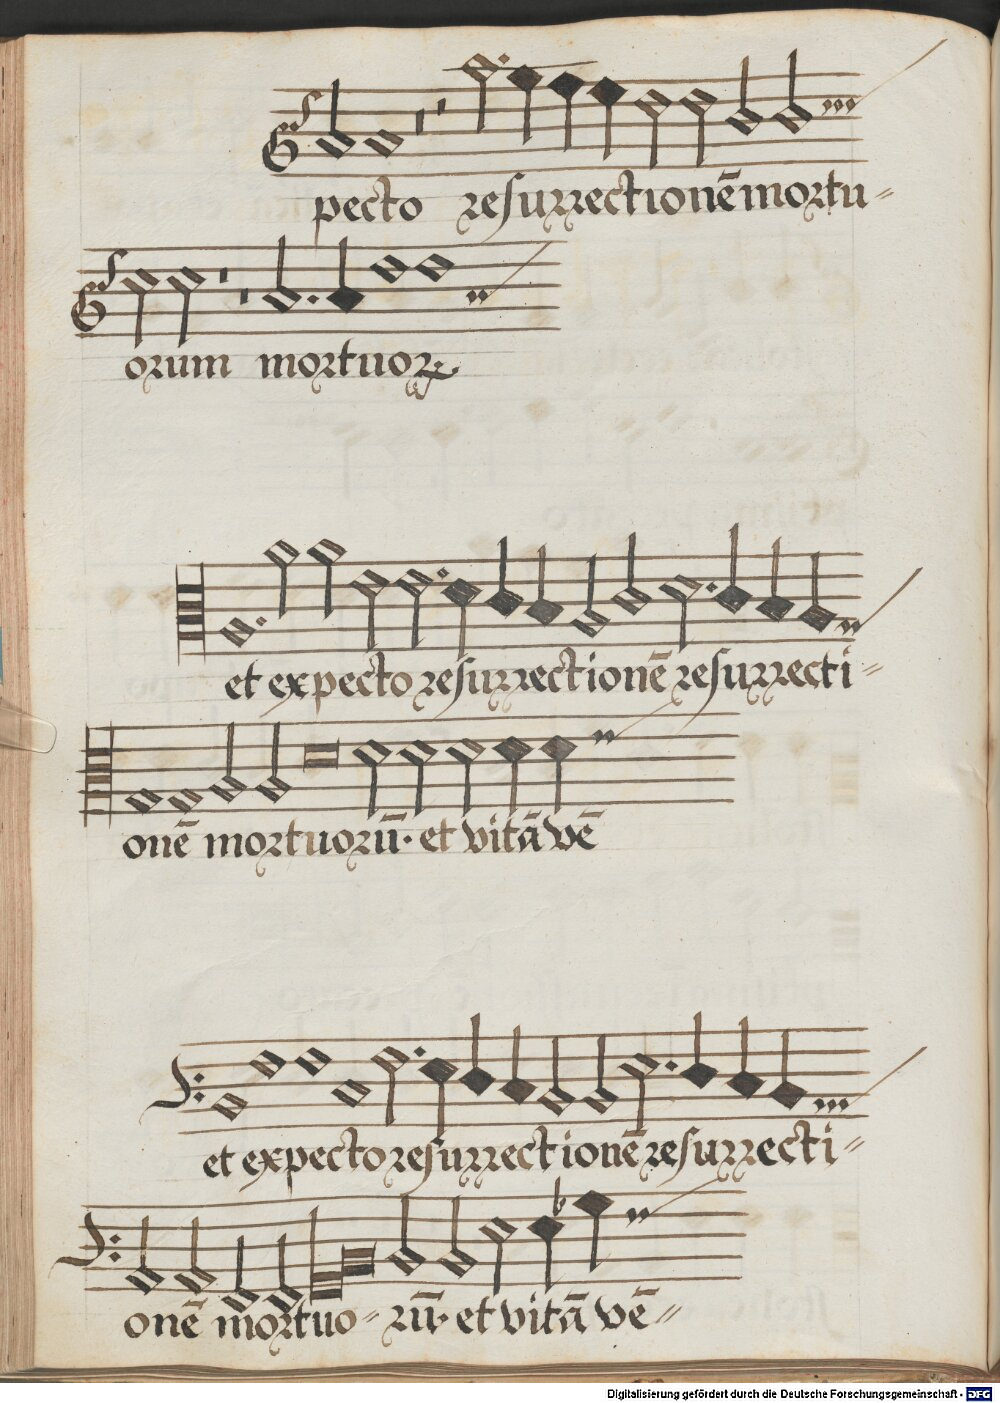 pecto resurrectionē mortu-
orum mortuoꝝ
et expecto resurrectionē resurrecti-
onē mortuorū. et vitā vē
et expecto resurrectionē resurrecti-
onē mortuo-rū. et vitā vē-
Digitalisierung gefördert durch die Deutsche Forschungsgemeinschaft - DFG